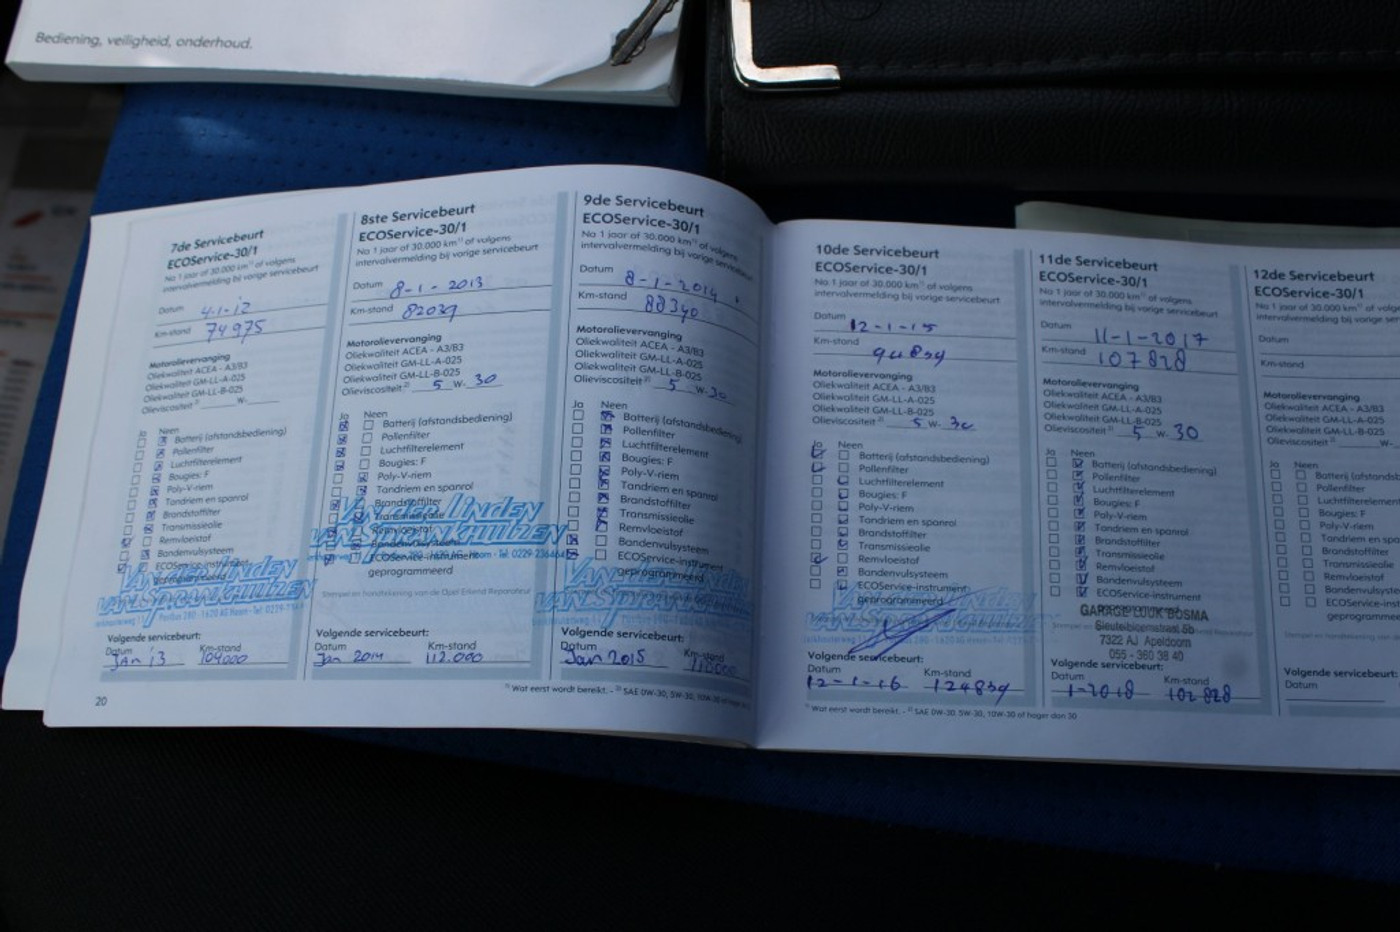 Bediening, veiligheid, onderhoud.
7de Servicebeurt
ECOService-30/1
Na 1 jaar of 30.000 km¹⁾ of volgens
intervalvermelding bij vorige servicebeurt
Datum 4-1-12
Km-stand 74975
Motorolievervanging
Oliekwaliteit ACEA - A3/B3
Oliekwaliteit GM-LL-A-025
Oliekwaliteit GM-LL-B-025
Olieviscositeit ²⁾ W-
Ja Neen
Batterij (afstandsbediening)
Pollenfilter
Luchtfilterelement
Bougies: F
Poly-V-riem
Tandriem en spanrol
Brandstoffilter
Transmissieolie
Remvloeistof
Bandenvulsysteem
ECOService-instrument
geprogrammeerd
VAN DER LINDEN
VAN SPRANKHUIZEN
Volgende servicebeurt:
Datum Km-stand
Jan '13 104000
20
8ste Servicebeurt
ECOService-30/1
Na 1 jaar of 30.000 km¹⁾ of volgens
intervalvermelding bij vorige servicebeurt
Datum 8-1-2013
Km-stand 82039
Motorolievervanging
Oliekwaliteit ACEA - A3/B3
Oliekwaliteit GM-LL-A-025
Oliekwaliteit GM-LL-B-025
Olieviscositeit ²⁾ 5 W- 30
Ja Neen
Batterij (afstandsbediening)
Pollenfilter
Luchtfilterelement
Bougies: F
Poly-V-riem
Tandriem en spanrol
Brandstoffilter
Transmissieolie
Remvloeistof
Bandenvulsysteem
ECOService-instrument
geprogrammeerd
VAN DER LINDEN
VAN SPRANKHUIZEN
Stempel en handtekening van de Opel Erkend Reparateur
Volgende servicebeurt:
Datum Km-stand
Jan 2014 112.000
9de Servicebeurt
ECOService-30/1
Na 1 jaar of 30.000 km¹⁾ of volgens
intervalvermelding bij vorige servicebeurt
Datum 8-1-2014
Km-stand 88340
Motorolievervanging
Oliekwaliteit ACEA - A3/B3
Oliekwaliteit GM-LL-A-025
Oliekwaliteit GM-LL-B-025
Olieviscositeit ²⁾ 5 W- 30
Ja Neen
Batterij (afstandsbediening)
Pollenfilter
Luchtfilterelement
Bougies: F
Poly-V-riem
Tandriem en spanrol
Brandstoffilter
Transmissieolie
Remvloeistof
Bandenvulsysteem
ECOService-instrument
geprogrammeerd
VAN DER LINDEN
VAN SPRANKHUIZEN
Volgende servicebeurt:
Datum Km-stand
Jan 2015 110000
¹⁾ Wat eerst wordt bereikt. - ²⁾ SAE 0W-30, 5W-30, 10W-30 of hoger dan
10de Servicebeurt
ECOService-30/1
Na 1 jaar of 30.000 km¹⁾ of volgens
intervalvermelding bij vorige servicebeurt
Datum 12-1-15
Km-stand 94839
Motorolievervanging
Oliekwaliteit ACEA - A3/B3
Oliekwaliteit GM-LL-A-025
Oliekwaliteit GM-LL-B-025
Olieviscositeit ²⁾ 5 W- 30
Ja Neen
Batterij (afstandsbediening)
Pollenfilter
Luchtfilterelement
Bougies: F
Poly-V-riem
Tandriem en spanrol
Brandstoffilter
Transmissieolie
Remvloeistof
Bandenvulsysteem
ECOService-instrument
geprogrammeerd
VAN DER LINDEN
VAN SPRANKHUIZEN
Volgende servicebeurt:
Datum Km-stand
12-1-16 124839
¹⁾ Wat eerst wordt bereikt. - ²⁾ SAE 0W-30, 5W-30, 10W-30 of hoger dan 30
11de Servicebeurt
ECOService-30/1
Na 1 jaar of 30.000 km¹⁾ of volgens
intervalvermelding bij vorige servicebeurt
Datum 11-1-2017
Km-stand 107828
Motorolievervanging
Oliekwaliteit ACEA - A3/B3
Oliekwaliteit GM-LL-A-025
Oliekwaliteit GM-LL-B-025
Olieviscositeit ²⁾ 5 W- 30
Ja Neen
Batterij (afstandsbediening)
Pollenfilter
Luchtfilterelement
Bougies: F
Poly-V-riem
Tandriem en spanrol
Brandstoffilter
Transmissieolie
Remvloeistof
Bandenvulsysteem
ECOService-instrument
GARAGE LUUK BOSMA
Sleutelbloemstraat 5b
7322 AJ Apeldoorn
055 - 360 38 40
Volgende servicebeurt:
Datum Km-stand
1-2018 102828
12de Servicebeurt
ECOService-30/1
Na 1 jaar of 30.000 km¹⁾ of volgens
intervalvermelding bij vorige
Datum
Km-stand
Motorolievervanging
Oliekwaliteit ACEA - A3/B3
Oliekwaliteit GM-LL-A-025
Oliekwaliteit GM-LL-B-025
Olieviscositeit ²⁾ W-
Ja Neen
Batterij (afstandsb
Pollenfilter
Luchtfilterelement
Bougies: F
Poly-V-riem
Tandriem en spa
Brandstoffilter
Transmissieolie
Remvloeistof
Bandenvulsysteem
ECOService-inst
geprogramme
Volgende servicebeurt:
Datum